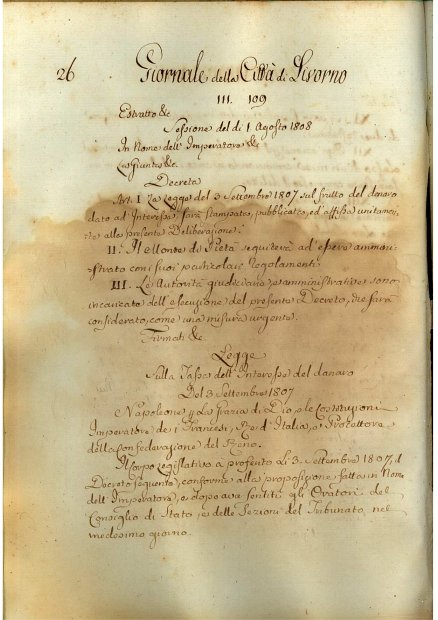 26
Giornale della Città di Livorno
III. 109
Estratto &c
Sessione del di 1 Agosto 1808
In Nome dell' Imperatore &c
La Giunta &c.
Decreta
Art. I La Legge del 3 Settembre 1807 sul frutto del danaro
dato ad Interesse sarà stampata, pubblicata, ed affissa unitamen-
te alla presente Deliberazione.
II. Il Monte di Pietà seguiterà ad essere ammini-
strato con i suoi particolari Regolamenti.
III. Le Autorità giudiciarie, ed amministrative sono
incaricate dell' esecuzione del presente Decreto, che sarà
considerato, come una misura urgente.
Firmati &c.
Legge
Sulla Tassa dell' Interesse del danaro
Del 3 Settembre 1807
Napoleone p. la Grazia di Dio, e le Costituzioni
Imperatore de i Francesi, Re d' Italia, e Protettore
della Confederazione del Reno.
Il Corpo legislativo à 3. Settembre 1807, il
Decreto seguente, conforme alla proposizione fatta in Nome
dell' Imperatore, e dopo aver sentiti gli Oratori del
Consiglio di Stato, e delle Sezioni del Tribunato nel
medesimo giorno.